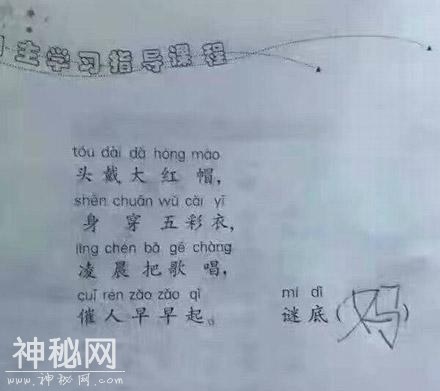 生学习指导课程
tóu dài dà hóng mào
头戴大红帽，
shēn chuān wǔ cǎi yī
身穿五彩衣，
líng chén bǎ gē chàng
凌晨把歌唱，
cuī rén zǎo zǎo qǐ
催人早早起。
mí dǐ
谜底(妈)
神秘网
www.神秘网.com